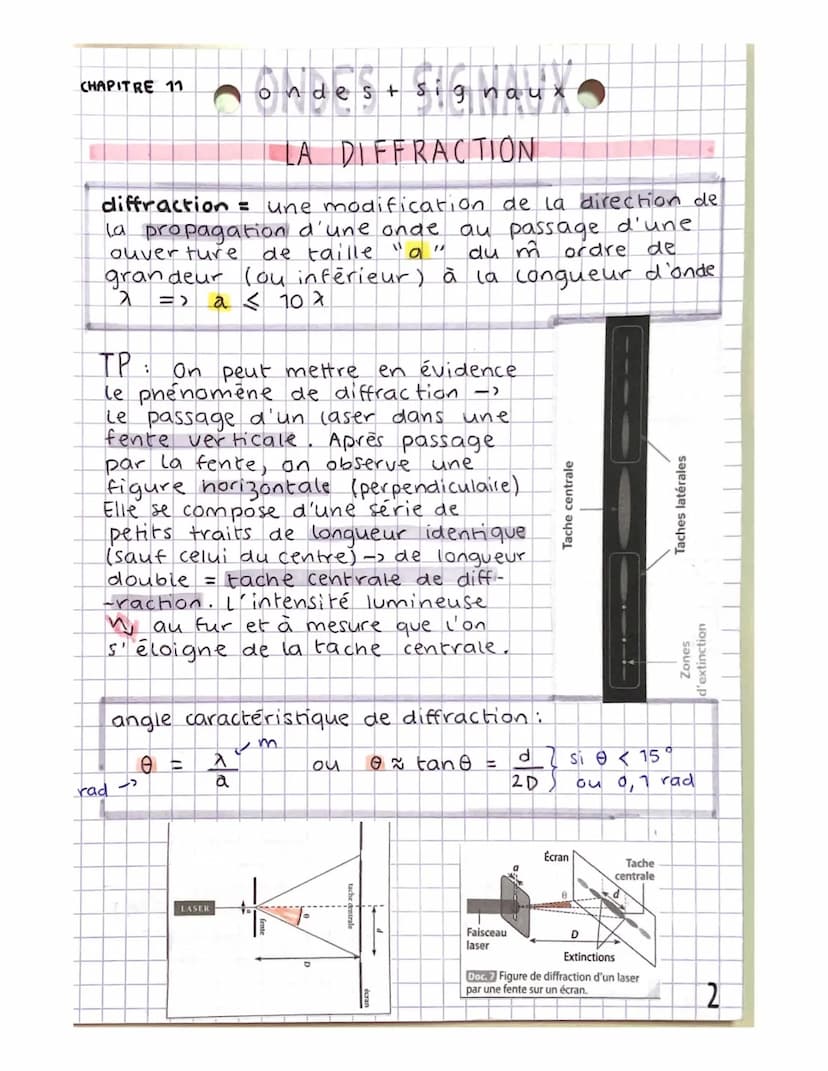 CHAPITRE 11
ONDES + SIGNAUX
ondes + signaux
LA DIFFRACTION
diffraction = une modification de la direction de
la propagation d'une onde au passage d'une
ouverture de taille "a" du m̂ ordre de
grandeur (ou inférieur) à la longueur d'onde
λ => a ≤ 10 λ
TP : On peut mettre en évidence
le phénomène de diffraction ->
le passage d'un laser dans une
fente verticale. Après passage
par la fente, on observe une
figure horizontale (perpendiculaire)
Elle se compose d'une série de
petits traits de longueur identique
(sauf celui du centre) -> de longueur
double = tache centrale de diff-
-raction. L'intensité lumineuse
↘ au fur et à mesure que l'on
s'éloigne de la tache centrale.
Tache centrale
Taches latérales
Zones
d'extinction
angle caractéristique de diffraction :
rad -> θ = λ/a m ou θ ≈ tanθ = d/2D } si θ < 15°
ou 0,1 rad
LASER
a
fente
θ
D
tache centrale
d
écran
a
Écran
Tache
centrale
θ
d
D
Faisceau
laser
Extinctions
Doc. 7 Figure de diffraction d'un laser
par une fente sur un écran.
2